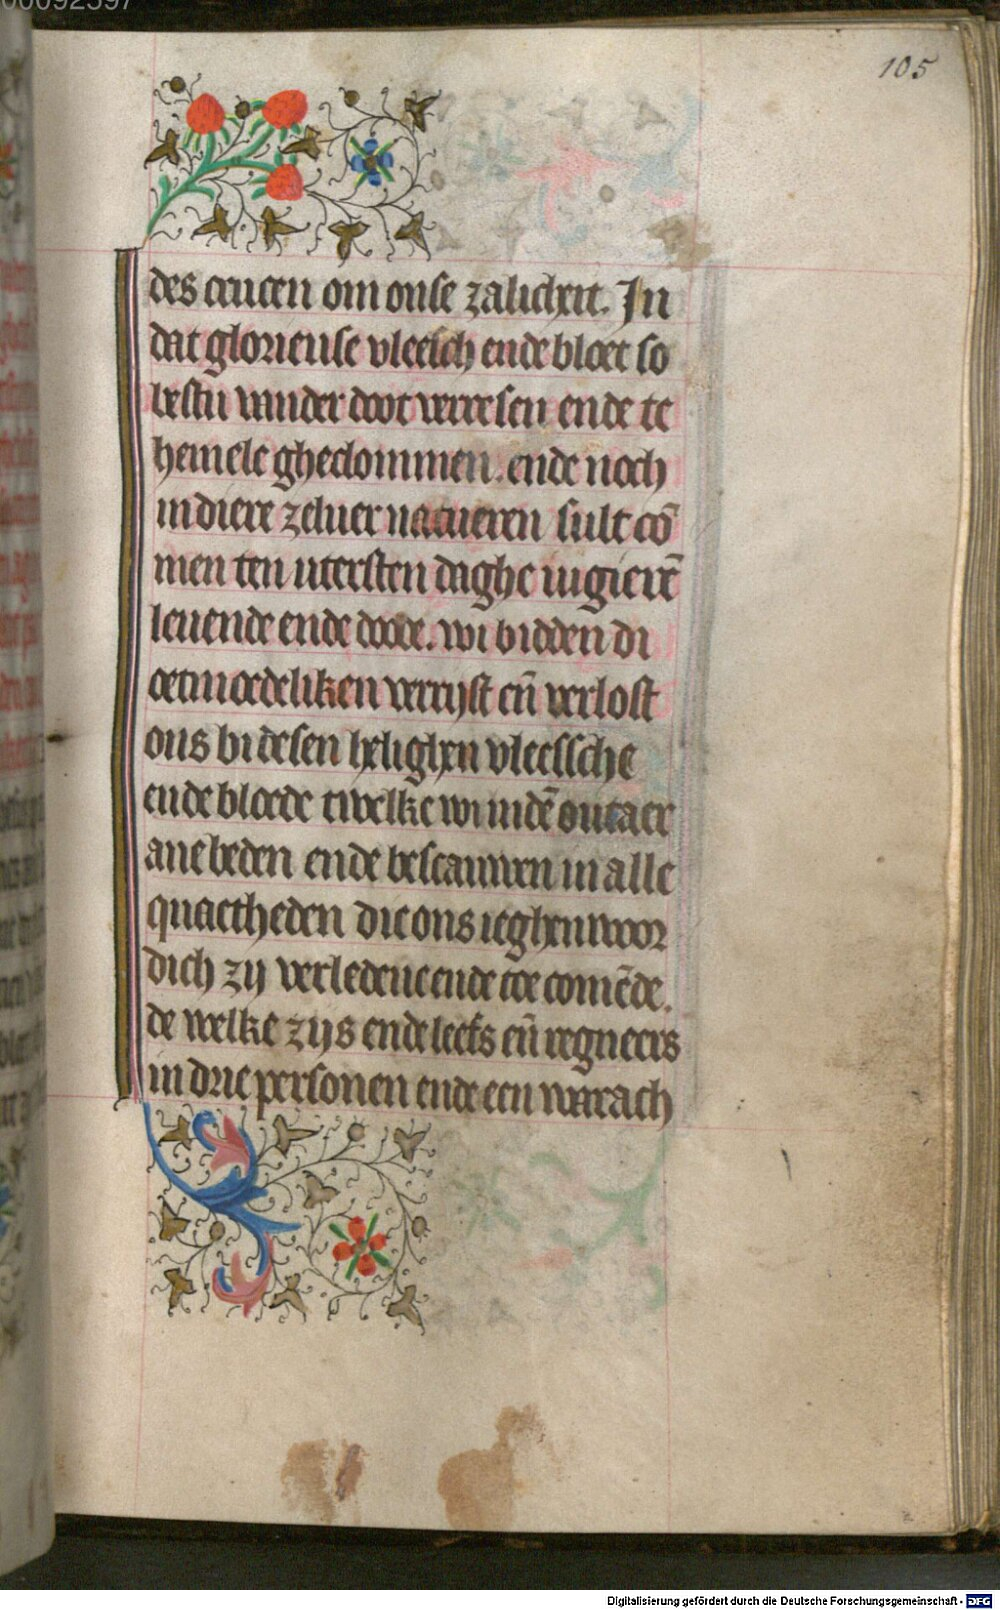 105
des crucen om onse zalichеit. In
dat glorieuse vleesch ende bloet so
bestu vander doot verresen ende te
hemele gheclommen. ende noch
in diere zeluer natueren sult cō
men ten utersten daghe iugierē
leuende ende doode. wi bidden di
oetmoedeliken verrijst eñ verlost
ons bi desen helighen vleessche
ende bloede twelke wi in dē outaer
anebeden ende bescauwen in alle
quaetheden die ons ieghenwoor
dich zy verledene ende toe comēde.
de welke zijs ende leefs eñ regneers
in drie personen ende een warach
Digitalisierung gefördert durch die Deutsche Forschungsgemeinschaft - DFG